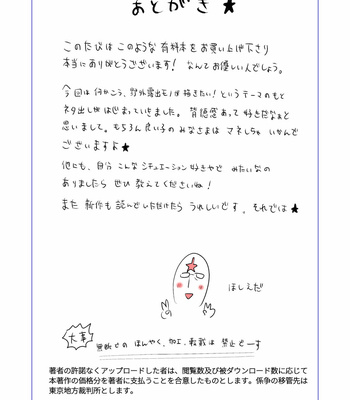 あとがき★
このたびは このような 有料本を お買い上げ下さり
本当に ありがとうございます! なんてお優しい人でしょう。
今回は 何かこう、野外露出モノが描きたい! という テーマのもと
ネタ出しが はじまっていきました。背徳感あって 好きだなぁと
思いまして。もちろん 良い子の みなさまは マネしちゃ いかんで
ございますよ★
他にも、自分 こんな シチュエーション 好きやで みたいなの
ありましたら ぜひ 教えてくださいね!
また 新作も 読んでいただけたら うれしいです。それでは★
ほしえだ
大事
無断での ほんやく、加工、転載は 禁止でーす
著者の許諾なくアップロードした者は、閲覧数及び被ダウンロード数に応じて
本著作の価格分を著者に支払うことを合意したものとします。係争の移管先は
東京地方裁判所とします。